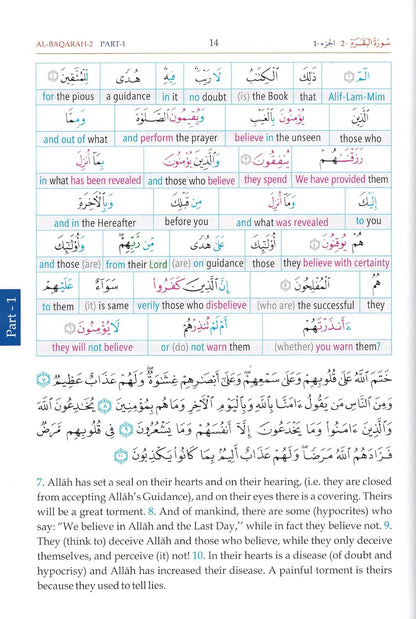 AL-BAQARAH-2 PART-1 14 الجزء-١ سُورَةُ البَقَرَة -٢
الٓمٓ ١ ذَٰلِكَ الْكِتَٰبُ لَا رَيْبَ فِيهِ هُدًى لِّلْمُتَّقِينَ ٢
for the pious a guidance in it no doubt (is) the Book that Alif-Lam-Mim
الَّذِينَ يُؤْمِنُونَ بِالْغَيْبِ وَيُقِيمُونَ الصَّلَوٰةَ وَمِمَّا
and out of what and perform the prayer believe in the unseen those who
رَزَقْنَٰهُمْ يُنفِقُونَ ٣ وَالَّذِينَ يُؤْمِنُونَ بِمَا أُنزِلَ
in what has been revealed and those who believe they spend We have provided them
إِلَيْكَ وَمَا أُنزِلَ مِن قَبْلِكَ وَبِالْآخِرَةِ
and in the Hereafter before you and what was revealed to you
هُمْ يُوقِنُونَ ٤ أُوْلَٰٓئِكَ عَلَىٰ هُدًى مِّن رَّبِّهِمْ وَأُوْلَٰٓئِكَ
and those (are) from their Lord (are) on guidance those they believe with certainty
هُمُ الْمُفْلِحُونَ ٥ إِنَّ الَّذِينَ كَفَرُوا سَوَآءٌ عَلَيْهِمْ
to them (it) is same verily those who disbelieve (who are) the successful they
ءَأَنذَرْتَهُمْ أَمْ لَمْ تُنذِرْهُمْ لَا يُؤْمِنُونَ ٦
they will not believe or (do) not warn them (whether) you warn them?
Part - 1
خَتَمَ اللَّهُ عَلَىٰ قُلُوبِهِمْ وَعَلَىٰ سَمْعِهِمْ وَعَلَىٰ أَبْصَٰرِهِمْ غِشَٰوَةٌ وَلَهُمْ عَذَابٌ عَظِيمٌ ٧
وَمِنَ النَّاسِ مَن يَقُولُ ءَامَنَّا بِاللَّهِ وَبِالْيَوْمِ الْآخِرِ وَمَا هُم بِمُؤْمِنِينَ ٨ يُخَٰدِعُونَ اللَّهَ
وَالَّذِينَ ءَامَنُوا وَمَا يَخْدَعُونَ إِلَّآ أَنفُسَهُمْ وَمَا يَشْعُرُونَ ٩ فِي قُلُوبِهِم مَّرَضٌ
فَزَادَهُمُ اللَّهُ مَرَضًا وَلَهُمْ عَذَابٌ أَلِيمٌ بِمَا كَانُوا يَكْذِبُونَ ١٠
7. Allâh has set a seal on their hearts and on their hearing, (i.e. they are closed
from accepting Allâh's Guidance), and on their eyes there is a covering. Theirs
will be a great torment. 8. And of mankind, there are some (hypocrites) who
say: "We believe in Allâh and the Last Day," while in fact they believe not. 9.
They (think to) deceive Allâh and those who believe, while they only deceive
themselves, and perceive (it) not! 10. In their hearts is a disease (of doubt and
hypocrisy) and Allâh has increased their disease. A painful torment is theirs
because they used to tell lies.